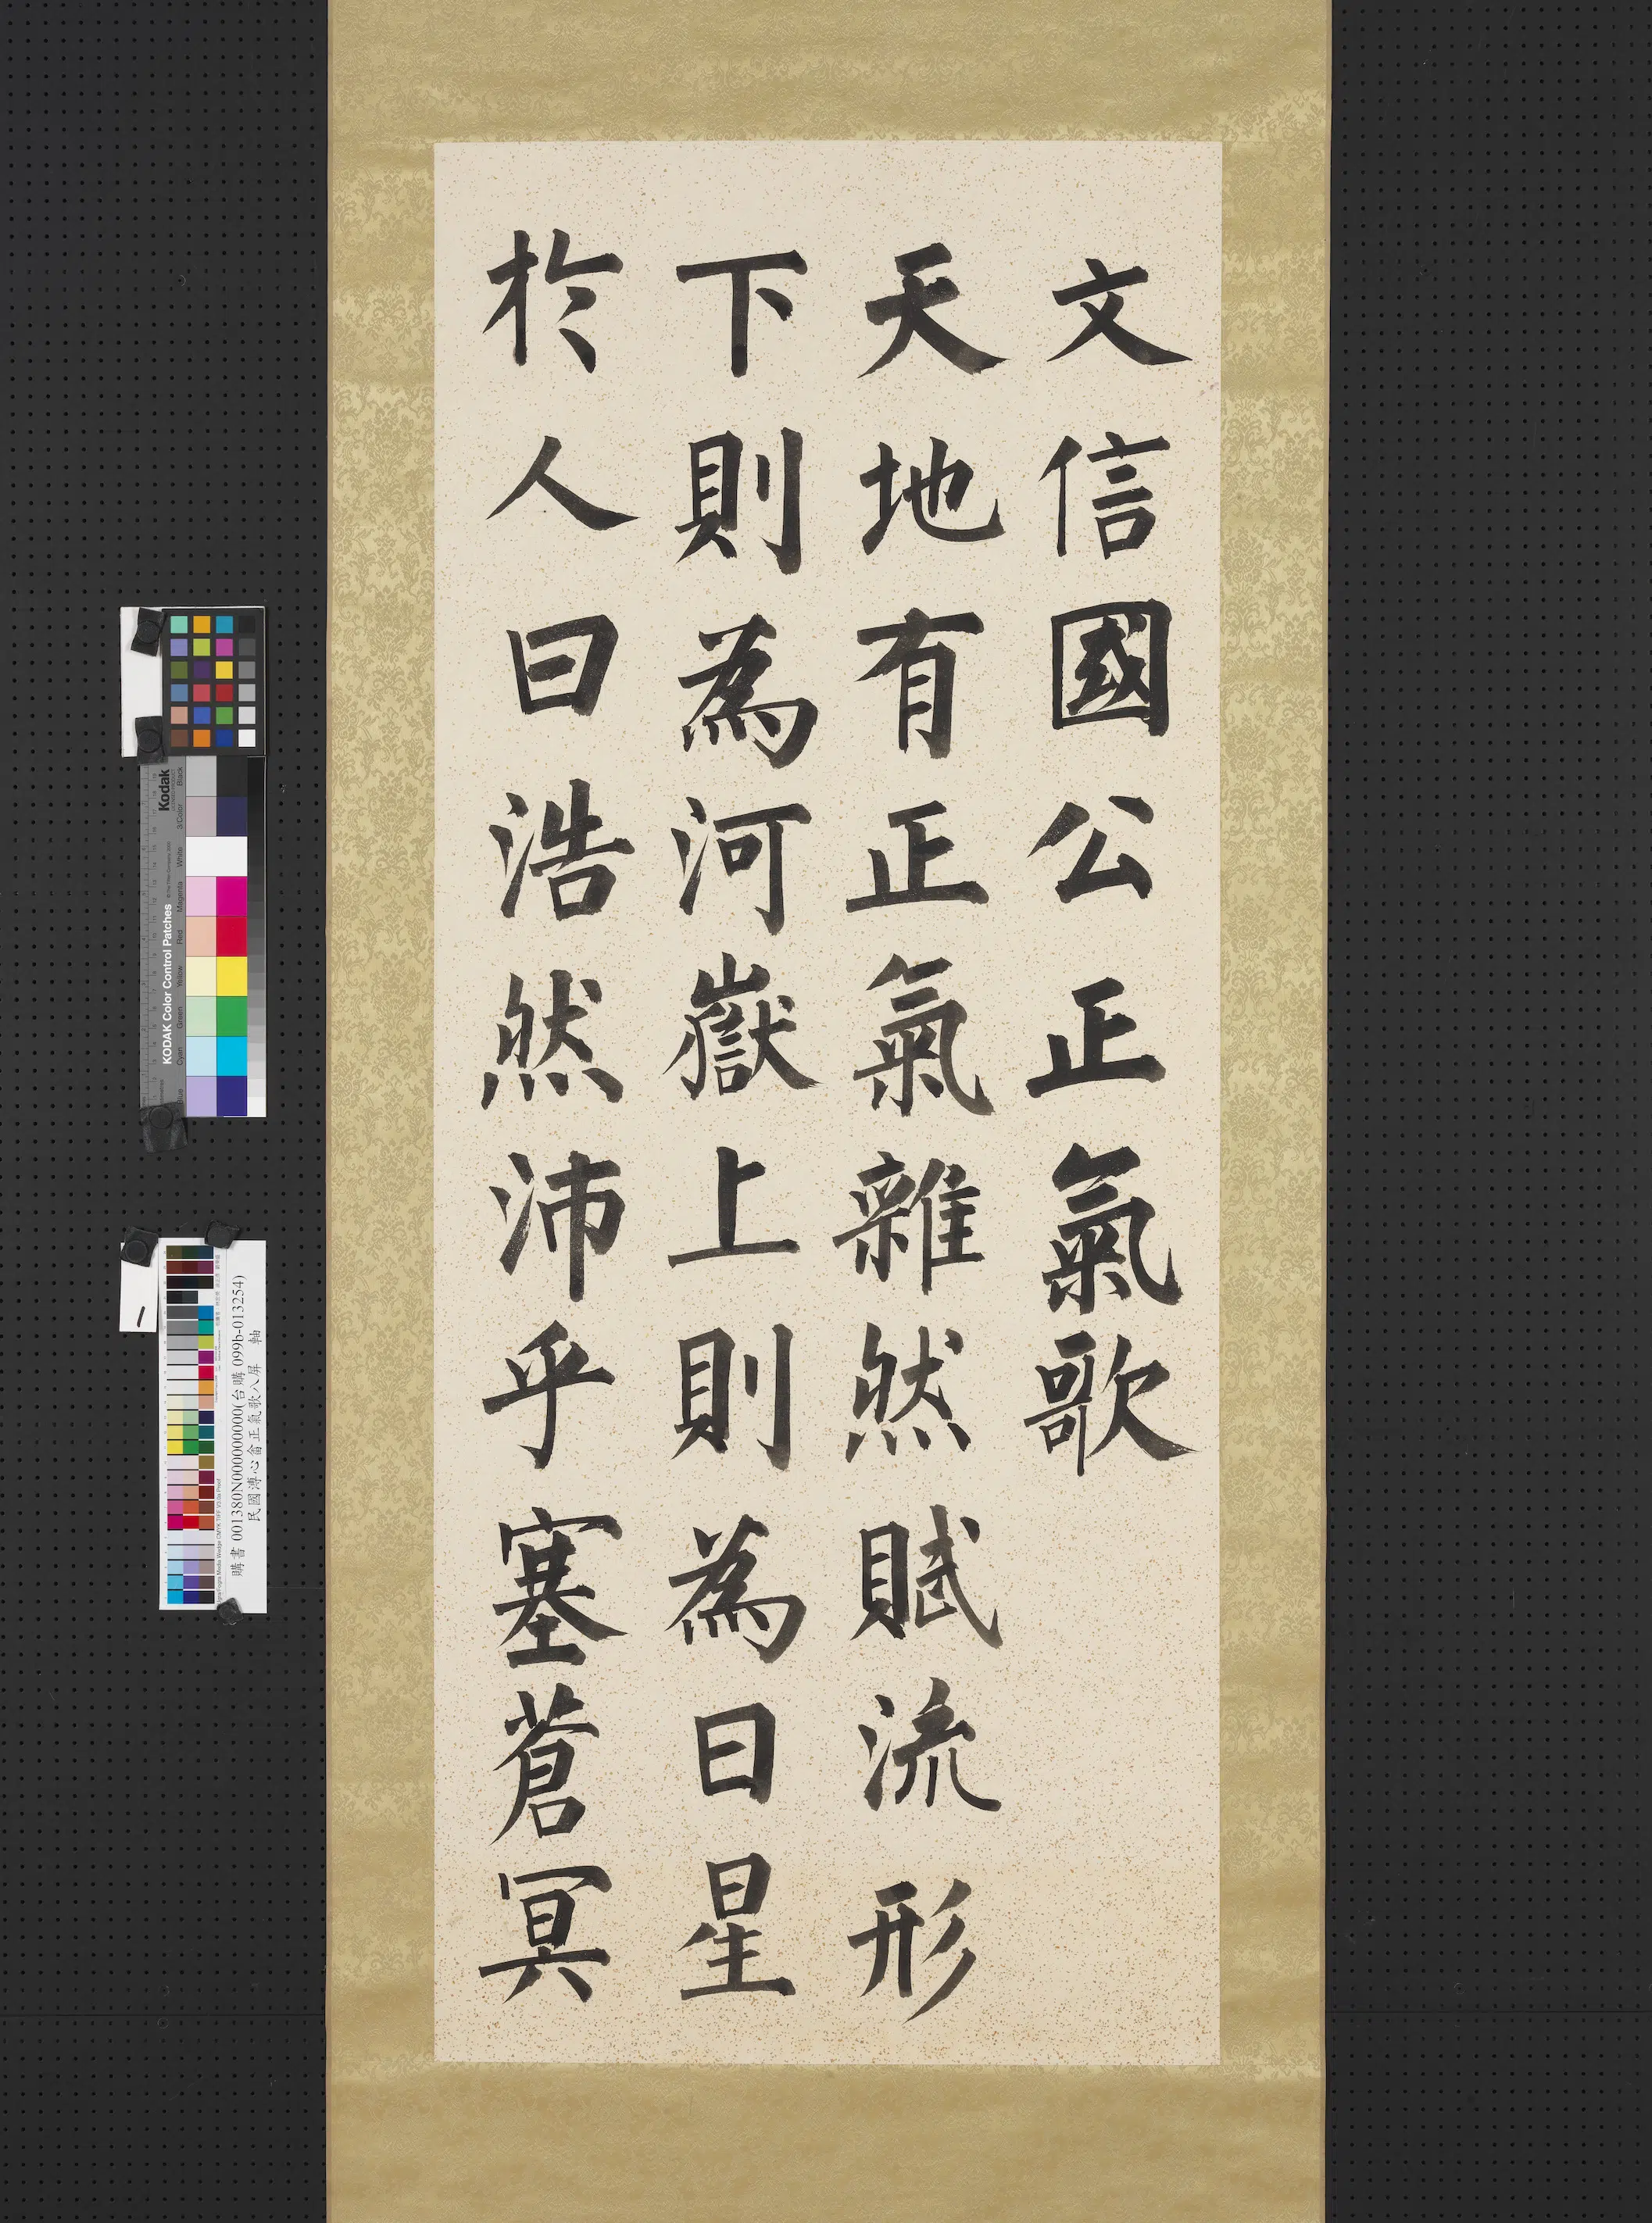 文信國公正氣歌
天地有正氣雜然賦流形
下則為河嶽上則為日星
於人曰浩然沛乎塞蒼冥
Kodak
KODAK Color Control Patches
Blue Cyan Green Yellow Red Magenta White 3/Color Black
購書 001380N000000000(台購 099b-013254)
民國溥心畬正氣歌八屏 軸